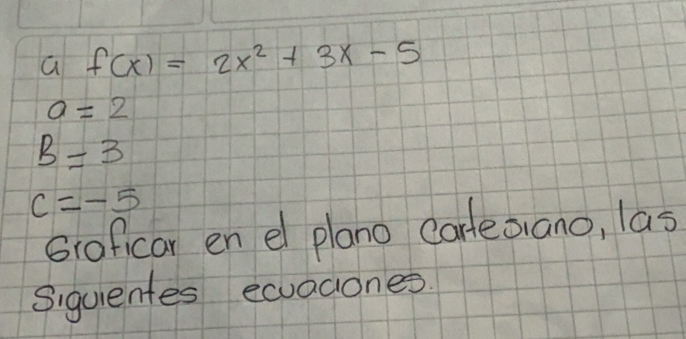 a f(x) = 2x² + 3x - 5
a = 2
B = 3
C = -5
Graficar en el plano cartesiano, las
siguientes ecuaciones.